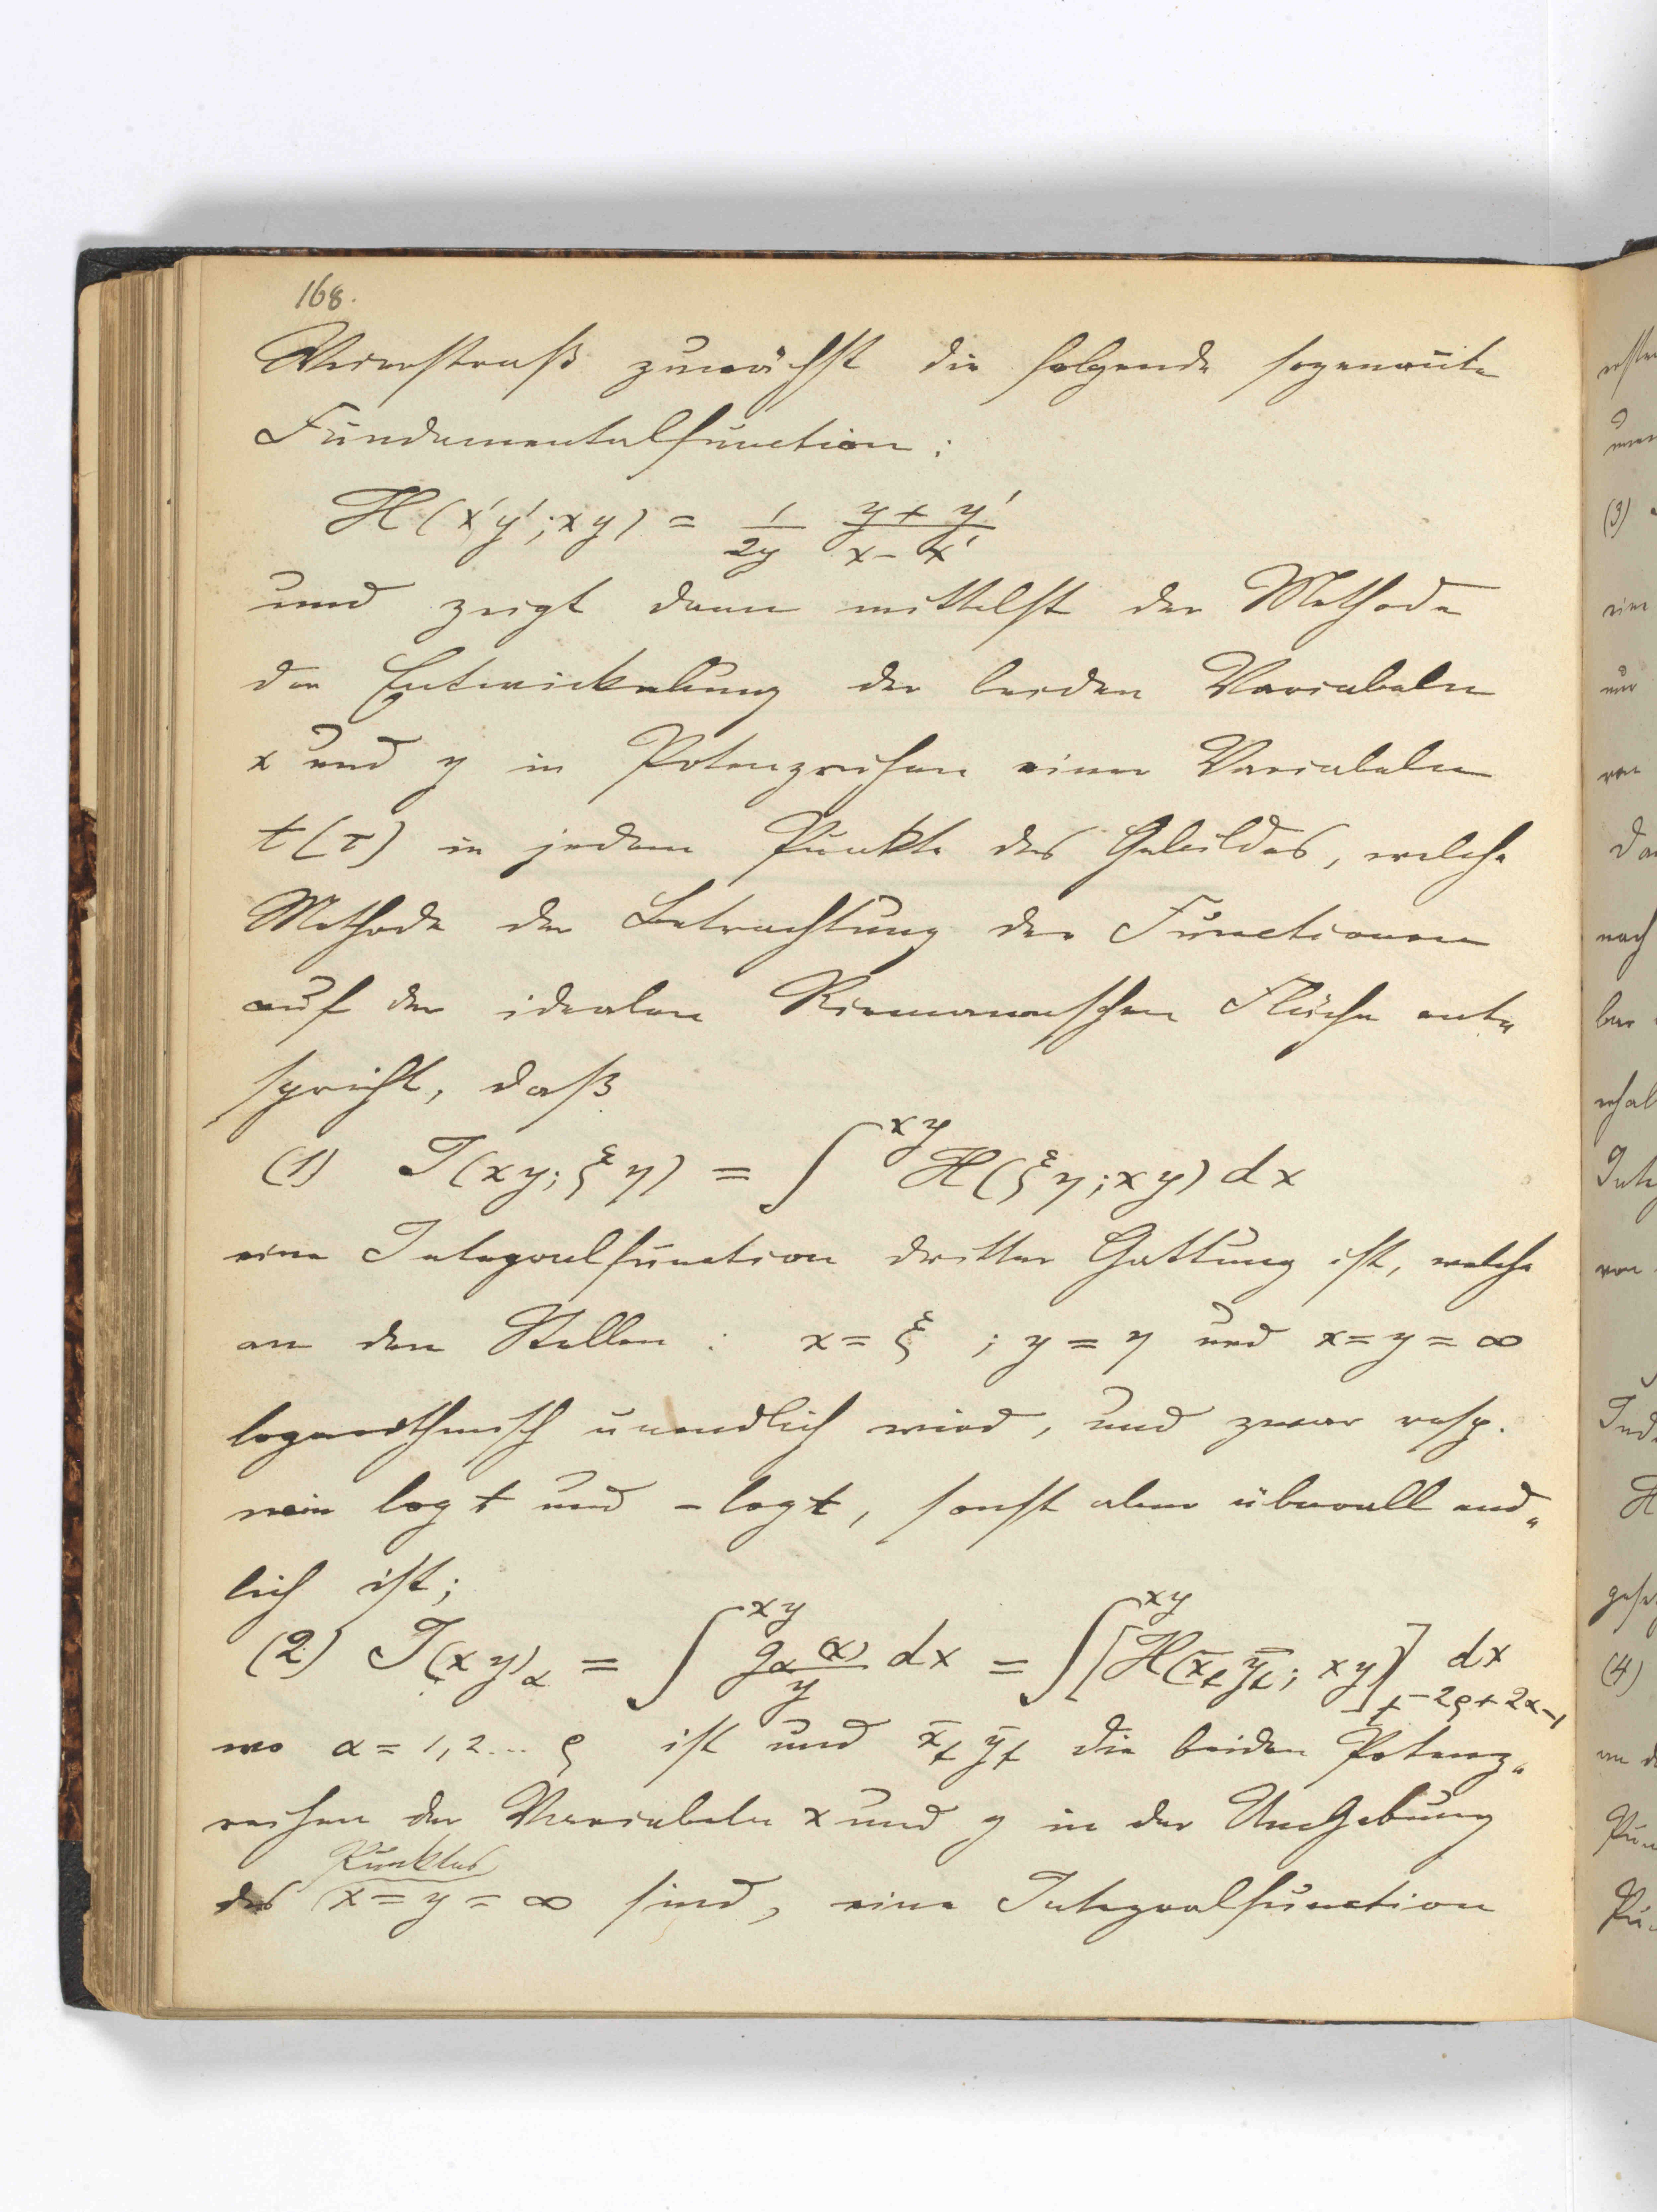 168.
Weierstraß zunächst die folgende sogenannte
Fundamentalfunction:
H(x'y';xy) = 1/2y (y+y')/(x-x')
und zeigt dann mittelst der Methode
der Entwickelung der beiden Variabeln
x und y in Potenzreihen einer Variabeln
t(τ) in jedem Punkte des Gebildes, welche
Methode der Betrachtung der Functionen
auf der idealen Riemannschen Fläche ent„
spricht, daß
(1) J(xy; ξη) = ∫^{xy} H(ξη; xy) dx
eine Integralfunction dritter Gattung ist, welche
an den Stellen: x = ξ ; y = η und x = y = ∞
logarithmisch unendlich wird, und zwar resp.
wie log t und - log t, sonst aber überall end„
lich ist;
(2) J(xy)_α = ∫^{xy} g_α(x)/y dx = ∫^{xy} [H(x̄_t ȳ_t; xy)]_{t^{-2ρ+2α-1}} dx
wo α = 1, 2... ρ ist und x̄_t ȳ_t die beiden Potenz„
reihen der Variabeln x und y in der Umgebung
des Punktes x = y = ∞ sind, eine Integralfunction